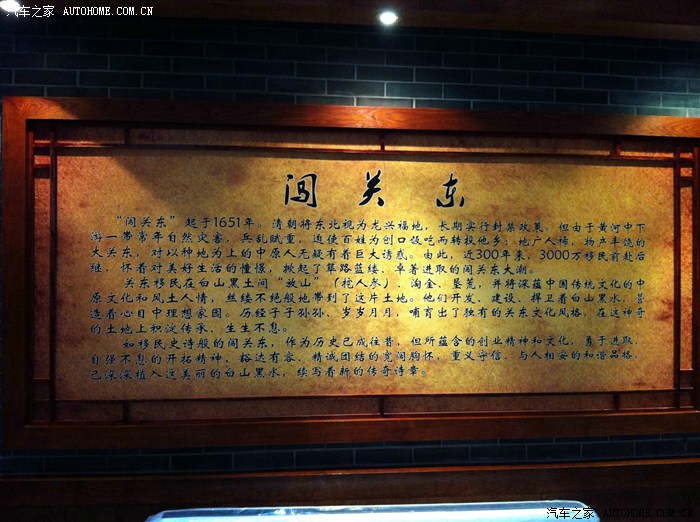 汽车之家 AUTOHOME.COM.CN
闯关东
“闯关东”起于1651年。清朝将东北视为龙兴福地,长期实行封禁政策。但由于黄河中下
游一带常年自然灾害,兵乱赋重,迫使百姓为创口饭吃而转投他乡;地广人稀,物产丰饶的
大关东,对以种地为上的中原人无疑有着巨大诱惑。由此,近300年来,3000万移民前赴后
继,怀着对美好生活的憧憬,掀起了筚路蓝缕、卓著进取的闯关东大潮。
关东移民在白山黑土间“放山”(挖人参)、淘金、垦荒,并将深蕴中国传统文化的中
原文化和风土人情,丝缕不绝般地带到了这片土地。他们开发、建设、捍卫着白山黑水,营
造着心目中理想家园。历经子子孙孙、岁岁月月,哺育出了独有的关东文化风格,在这神奇
的土地上积淀传承,生生不息。
如移民史诗般的闯关东,作为历史已成往昔,但所蕴含的创业精神和文化,勇于进取、
自强不息的开拓精神,豁达有容、精诚团结的宽阔胸怀,重义守信、与人相安的和谐品格,
已深深植入这美丽的白山黑水,续写着新的传奇诗章。
汽车之家 AUTOHOME.COM.CN